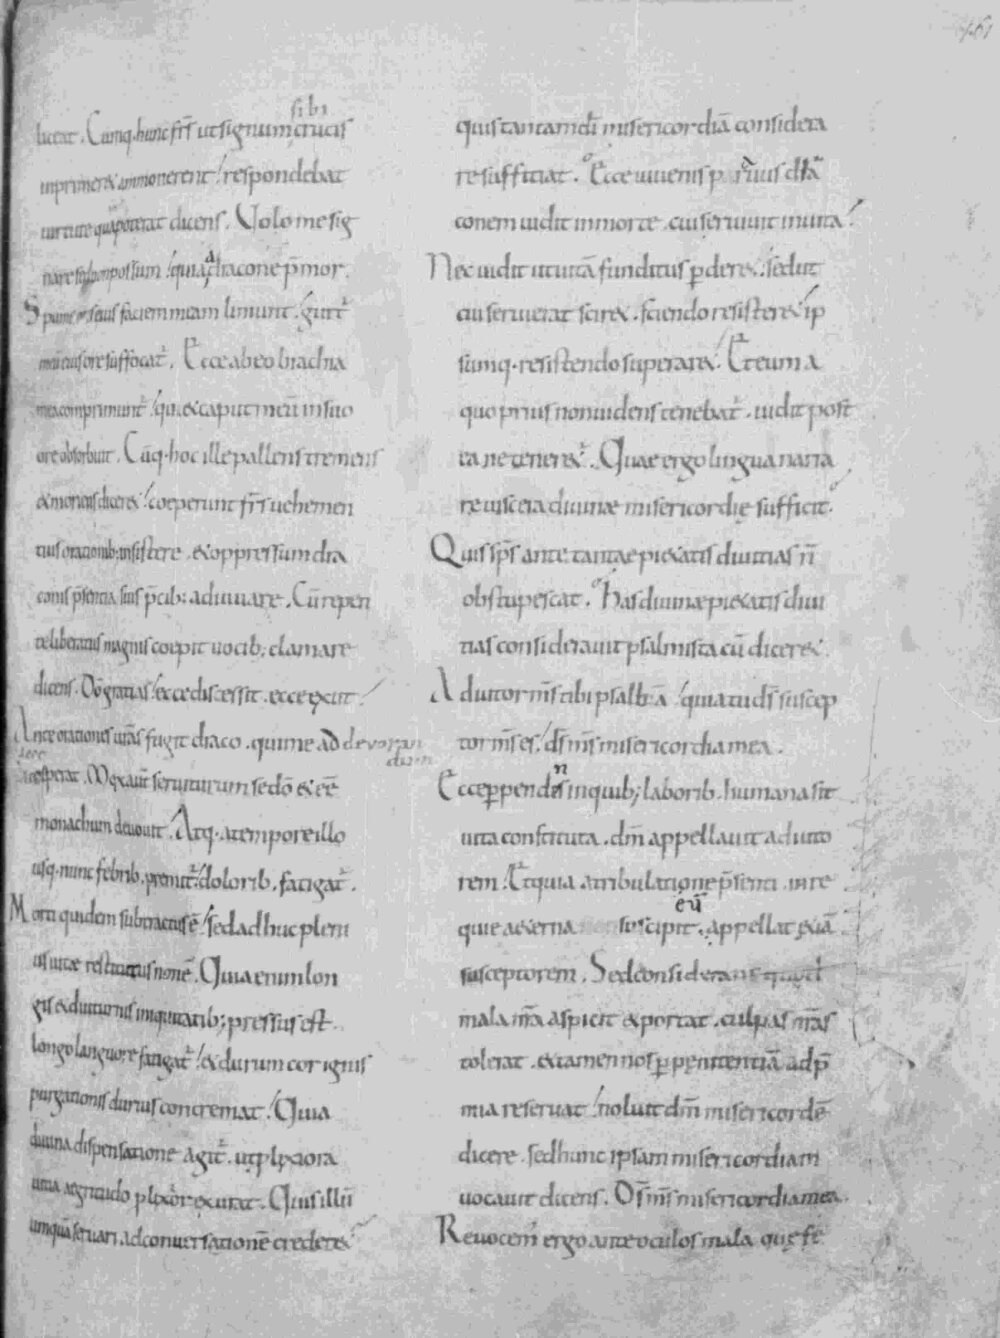 461
liceat. Cumq. hunc frs̄ ut signum sibi crucis
inprimeret ammonerent / respondebat
uirtute qua poterat dicens. Uolo me sig
nare sed non possum / quia a dracone p̄mor.
Spumae oris eius faciem meam liniunt. guttur
meū eius ore suffocat̉. Ecce ab eo brachia
mea comprimunt̉ / qui et caput meū in suo
ore obsorbuit. Cūq. hoc ille pallens tremens
et moriens diceret / coeperunt frs̄ uehemen
tius orationib; insistere. et oppressum dra
conis p̄sentia suis p̄cib; adiuuare. Cū repen
te liberatus magnis coepit uocib; clamare
dicens. Dō gratias / ecce discessit. ecce exiit /
Ante orationes ur̄as fugit draco. qui me ad deuoran
dum
acceperat. Mox aūt seruiturum se dō et eē
monachum deuouit. Atq. a tempore illo
usq. nunc febrib. premit̉ / dolorib. fatigat̉.
Morti quidem subtractus ē / sed adhuc pleni
us uitae restitutus non ē. Quia enim lon
gis et diuturnis iniquitatib; pressus est
longo languore fatigat̉ / et durum cor ignis
purgationis durius concremat / Quia
diuina dispensatione agit̉. ut plixiora
uitia aegritudo plixior exurat. Quis illū
umquā seruari ad conuersationē crederet
quis tantam di misericordiā considera
re sufficiat. Ecce iuuenis p. prauus dra
conem uidit in morte. cui seruiuit in uita /
Nec uidit ut uitā funditus pderet. sed ut
cui seruierat sciret. sciendo resisteret / ip
sumq. resistendo superaret. Et eum a
quo prius non uidens tenebat̉. uidit post
ea ne teneret̉. Quae ergo lingua narra
re uiscera diuinae misericordię sufficit.
Quis sp̄s ante tantae pietatis diuitias n̄
obstupescat. Has diuinae pietatis diui
tias considerauit psalmista cū diceret.
Adiutor ms̄ tibi psallā / quia tu ds̄ suscep
tor ms̄ es / ds̄ ms̄ misericordia mea.
Ecce ppendens in quib; laborib. humana sit
uita constituta. dm̄ appellauit adiuto
rem. Et quia a tribulatione p̄senti in re
quie aeterna suscipit eū. appellat etiā
susceptorem. Sed considerans quod
mala nr̄a aspicit et portat. culpas nr̄as
tolerat. et tamen nos p penitentiā ad p̄
mia reseruat / noluit dm̄ misericordē
dicere. sed hunc ipsam misericordiam
uocauit dicens. Ds̄ ms̄ misericordia mea.
Reuocem̉ ergo ante oculos mala que fe